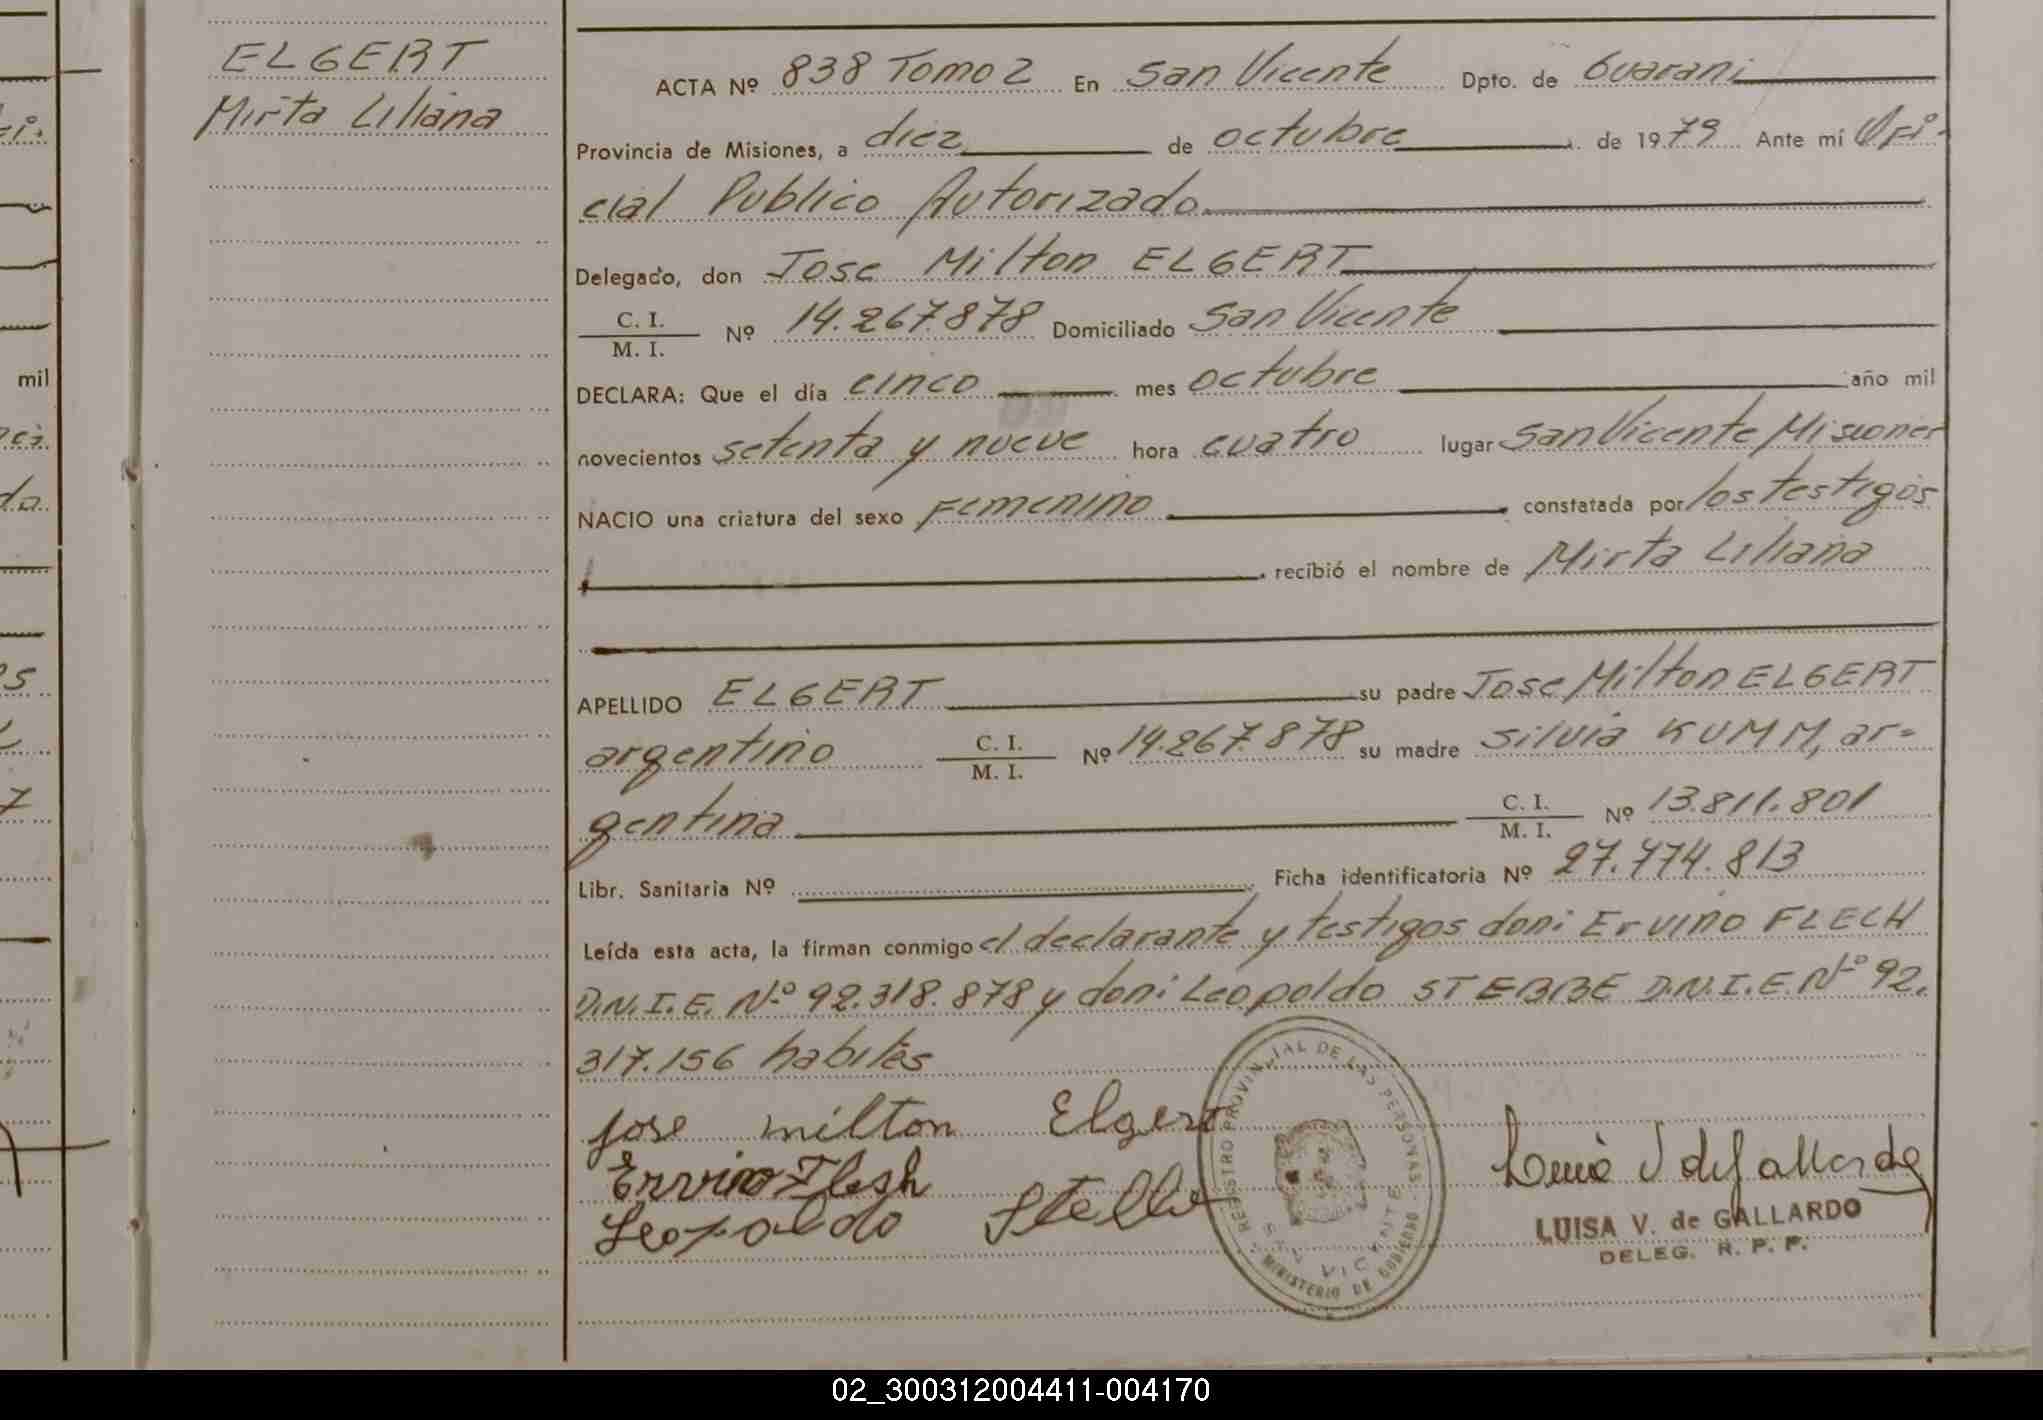 ELGERT
Mirta Liliana
ACTA Nº 838 Tomo 2 En San Vicente Dpto. de Guarani
Provincia de Misiones, a diez de octubre de 1979 Ante mí Ofi-
cial Publico Autorizado
Delegado, don Jose Milton ELGERT
C. I.
M. I. Nº 14.267.878 Domiciliado San Vicente
DECLARA: Que el día cinco mes octubre año mil
novecientos setenta y nueve hora cuatro lugar San Vicente Misiones
NACIO una criatura del sexo Femenino constatada por los testigos
recibió el nombre de Mirta Liliana
APELLIDO ELGERT su padre Jose Milton ELGERT
argentino C. I.
M. I. Nº 14.267.878 su madre Silvia KUMM, ar-
gentina C. I.
M. I. Nº 13.811.801
Libr. Sanitaria Nº Ficha identificatoria Nº 27.774.813
Leída esta acta, la firman conmigo el declarante y testigos don: Ervino FLECH
D.N.I.E. Nº 92.318.878 y don: Leopoldo STEBBE D.N.I.E. Nº 92.
317.156 habiles
Jose milton Elgert
Ervino Flesh
Leopoldo
REGISTRO PROVINCIAL DE LAS PERSONAS
SAN VICENTE
MINISTERIO DE GOBIERNO
LUISA V. de GALLARDO
DELEG. R. P. P.
mil
02_300312004411-004170